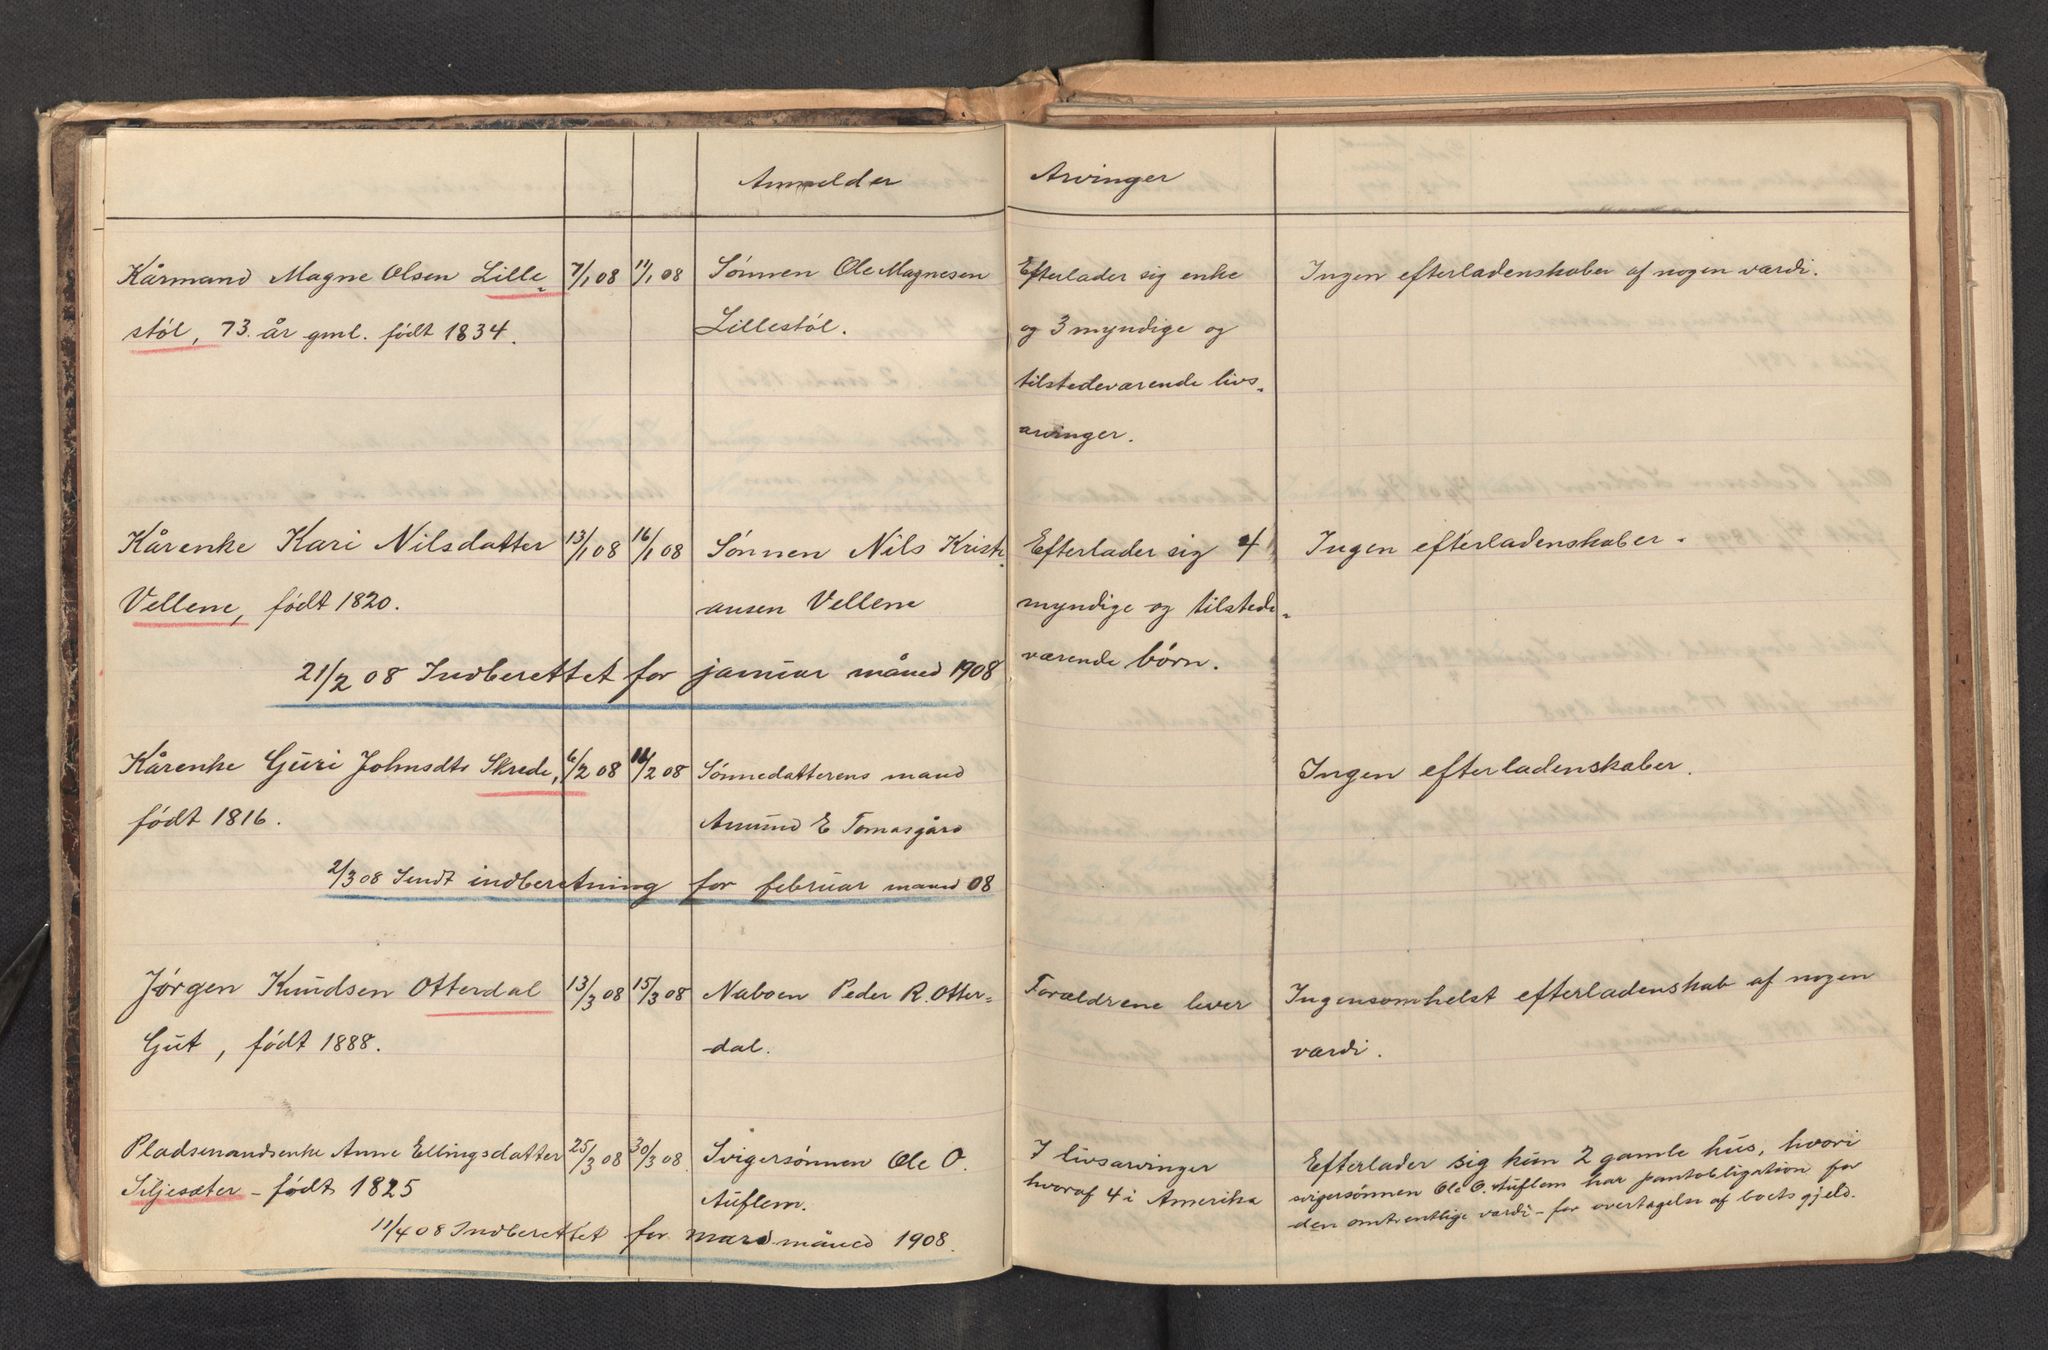 Anmelder
Arvinger
Kårmand Magne Olsen Lille-
støl, 73 år gml. født 1834.
7/1 08
11/1 08
Sønnen Ole Magnesen
Lillestøl.
Efterlader sig enke
og 3 myndige og
tilstedeværende livs-
arvinger.
Ingen efterladenskaber af nogen værdi.
Kårenke Kari Nilsdatter
Vellene, født 1820.
13/1 08
16/1 08
Sønnen Nils Kristi-
ansen Vellene
Efterlader sig 4
myndige og tilstede-
værende børn.
Ingen efterladenskaber.
21/2 08 Indberettet for januar måned 1908
Kårenke Guri Johnsdtr Skrede,
født 1816.
6/2 08
/2 08
Sønnedatterens mand
Amund E Tomasgård
Ingen efterladenskaber.
2/3 08 Sendt indberetning for februar maned 08
Jørgen Knudsen Otterdal
Gut, født 1888.
13/3 08
15/3 08
Naboen Peder R. Otter-
dal.
Forældrene lever
Ingensomhelst efterladenskab af nogen
værdi.
Pladsemandsenke Anne Ellingsdatter
Siljesæter - født 1825
25/3 08
30/3 08.
Svigersønnen Ole O.
Auflem.
7 livsarvinger
hvoraf 4 i Amerika
Efterlader sig kun 2 gamle hus, hvori
svigersønnen Ole O. Auflem har pantobligation for
den omtrentlige værdi - for overtagelse af boets gjeld.
11/4 08 Indberettet for mars måned 1908.